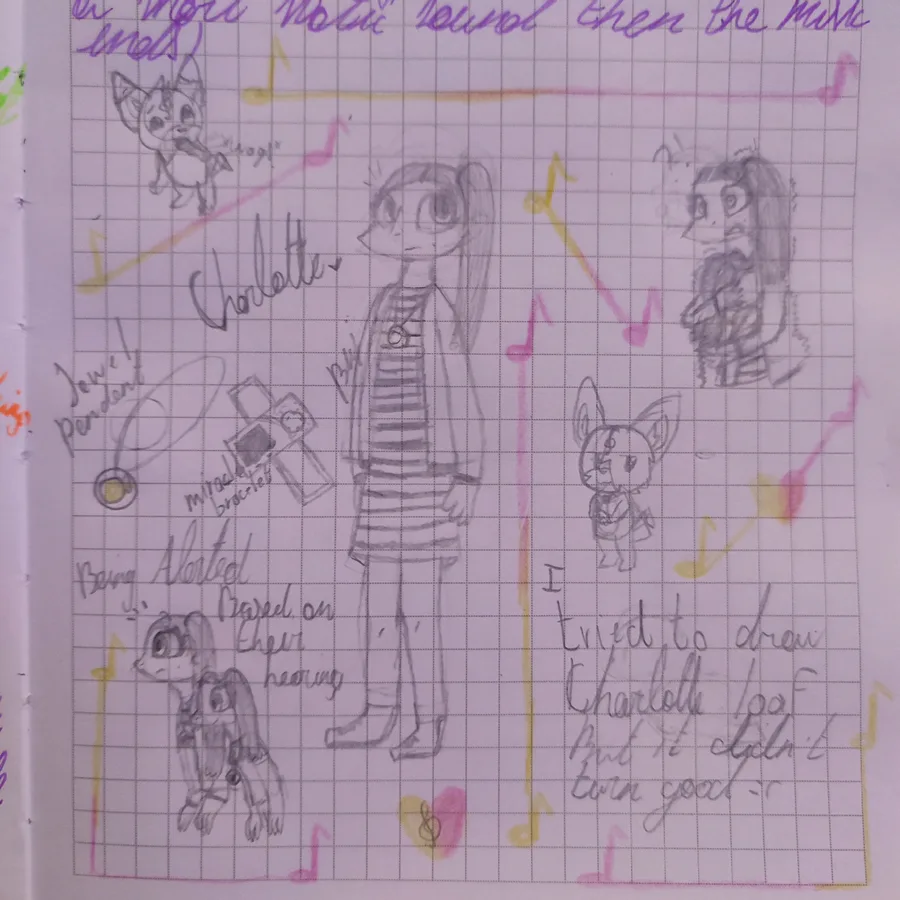 a more
sound then the music
ends)
Charlotte
Jewel
pendant
miracle
bracelet
Being Alerted
Based on
their
hearing
I
tried to draw
Charlotte loaf
But it didn't
turn good :c